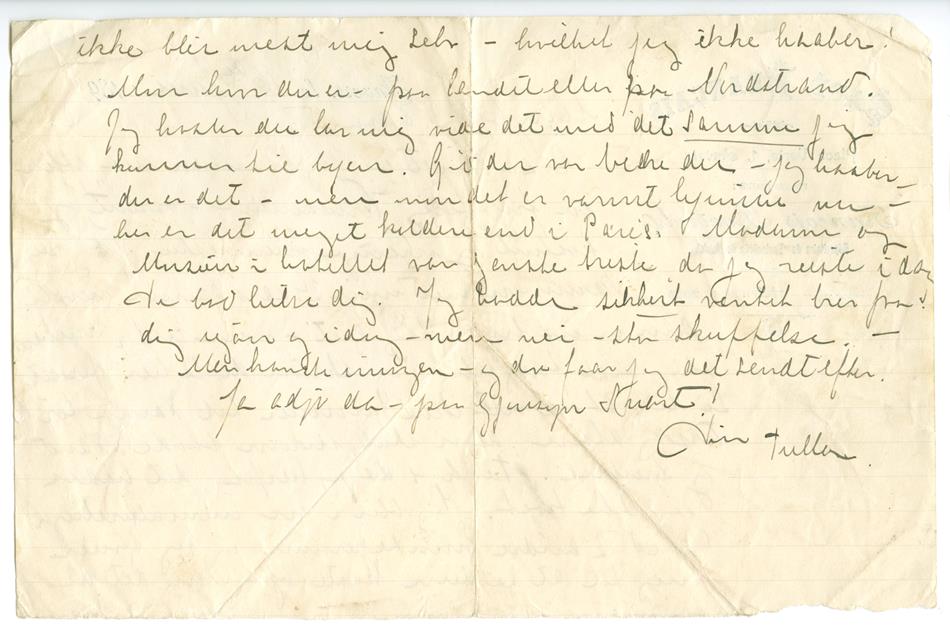 ikke blir mest mig selv – hvilket jeg ikke haaber!
Men hvor du er – paa landet eller paa Nordstrand.
Jeg haaber du lar mig vide det med det samme jeg
kommer til byen. Gid du var bedre du – jeg haaber
du er det – men det er varmt hjemme nu –
her er det meget koldere end i Paris. Madame og
Musiør i hotellet var ganske triste da jeg reiste idag
de bad hilse dig. Jeg hadde sikkert ventet brev fra
dig igaar og idag – men nei – stor skuffelse. –
Men kanske imorgen – og da faar jeg det sendt efter.
Ja adjø da – paa gjensyn snart!
Din Tulla.